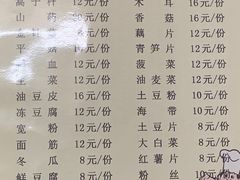 高 子 秆 12元/份 木 耳 16元/份
山 药 12元/份 香 菇 16元/份
金 针 菇 12元/份 藕 片 12元/份
平 菇 12元/份 青 笋 片 12元/份
血 12元/份 菠 菜 12元/份
生 菜 12元/份 油 麦 菜 12元/份
油 豆 皮 16元/份 土 豆 粉 10元/份
冻 豆 腐 12元/份 海 带 10元/份
宽 粉 12元/份 土 豆 片 8元/份
面 筋 12元/份 大 白 菜 8元/份
冬 瓜 8元/份 红 薯 片 8元/份
鲜 豆 腐 8元/份 粉 丝 10元/份